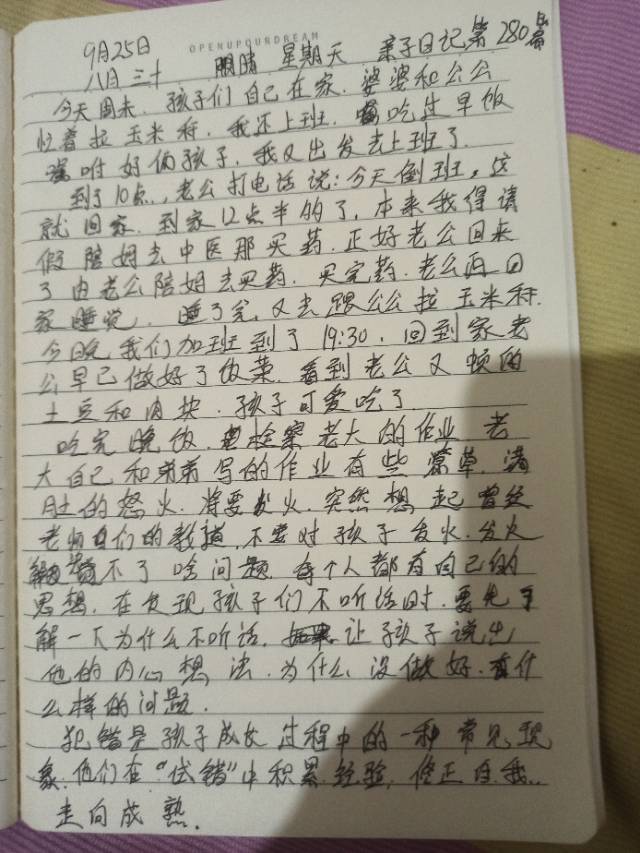 OPENUPOURDREAM
9月25日
八月三十 明晴 星期天 亲子日记第280篇
今天周末.孩子们自己在家.婆婆和公公
忙着拉玉米秆.我还上班.吃过早饭
嘱咐好俩孩子,我又出发去上班了.
到了10点.,老公打电话说:今天倒班,这
就回家.到家12点半的了,本来我得请
假陪妈去中医那买药.正好老公回来
了由老公陪妈去买药.买完药.老公再回
家睡觉.睡了觉,又去跟公公拉玉米秆.
今晚我们加班到了19:30.回到家老
公早已做好了饭菜.看到老公又顿的
土豆和肉块.孩子可爱吃了
吃完晚饭.检察老大的作业 老
大自己和弟弟写的作业有些潦草.满
肚的怒火.将要发火.突然想起曾经
老师们的教道,不要对孩子发火.发火
解决不了啥问题.每个人都有自己的
思想.在发现孩子们不听话时.要先了
解一下为什么不听话.让孩子说出
他的内心想法.为什么没做好.有什
么样的问题.
犯错是孩子成长过程中的一种常见现
象.他们在“试错”中积累经验,修正自我..
走向成熟.